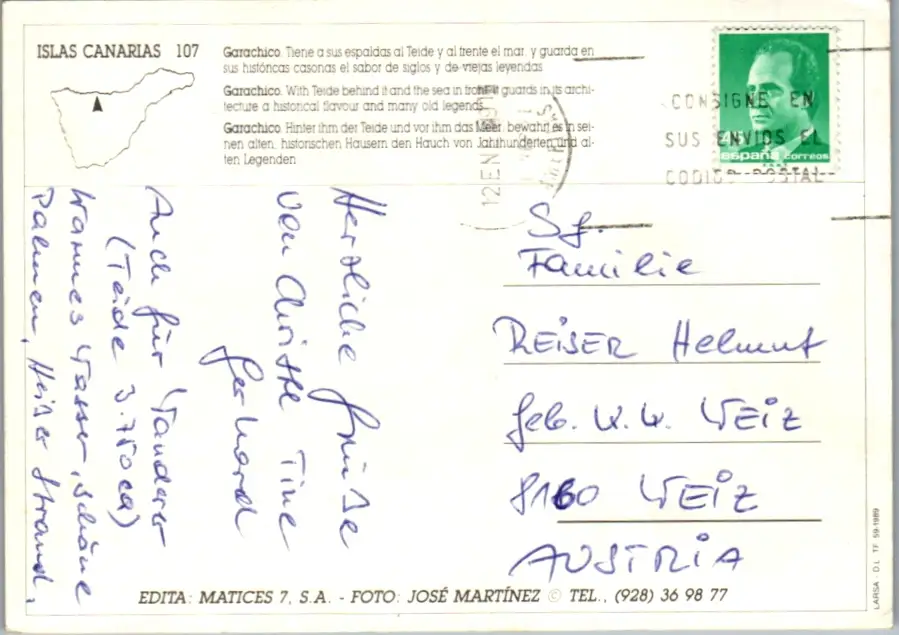 ISLAS CANARIAS 107
Garachico. Tiene a sus espaldas al Teide y al frente el mar, y guarda en
sus históricas casonas el sabor de siglos y de viejas leyendas
Garachico. With Teide behind it and the sea in front it guards in its archi-
tecture a historical flavour and many old legends
Garachico. Hinter ihm der Teide und vor ihm das Meer, bewahrt es in sei-
nen alten, historischen Hausern den Hauch von Jahrhunderten und al-
ten Legenden
12 EN
CONSIGNE EN
SUS ENVIOS EL
CODIGO POSTAL
españa correos
Herzliche Grüße
von Christl Tine
Gerhard
Auch für Wanderer
(Teide 3.750 ca)
Warmes Wasser, schöne
Palmen, Heißer Strand.
Sg.
Familie
REISER Helmut
Geb. K.W. WEIZ
8160 WEIZ
AUSTRIA
EDITA: MATICES 7, S.A. - FOTO: JOSÉ MARTÍNEZ © TEL., (928) 36 98 77
LARSA - D.L. TF 59-1989